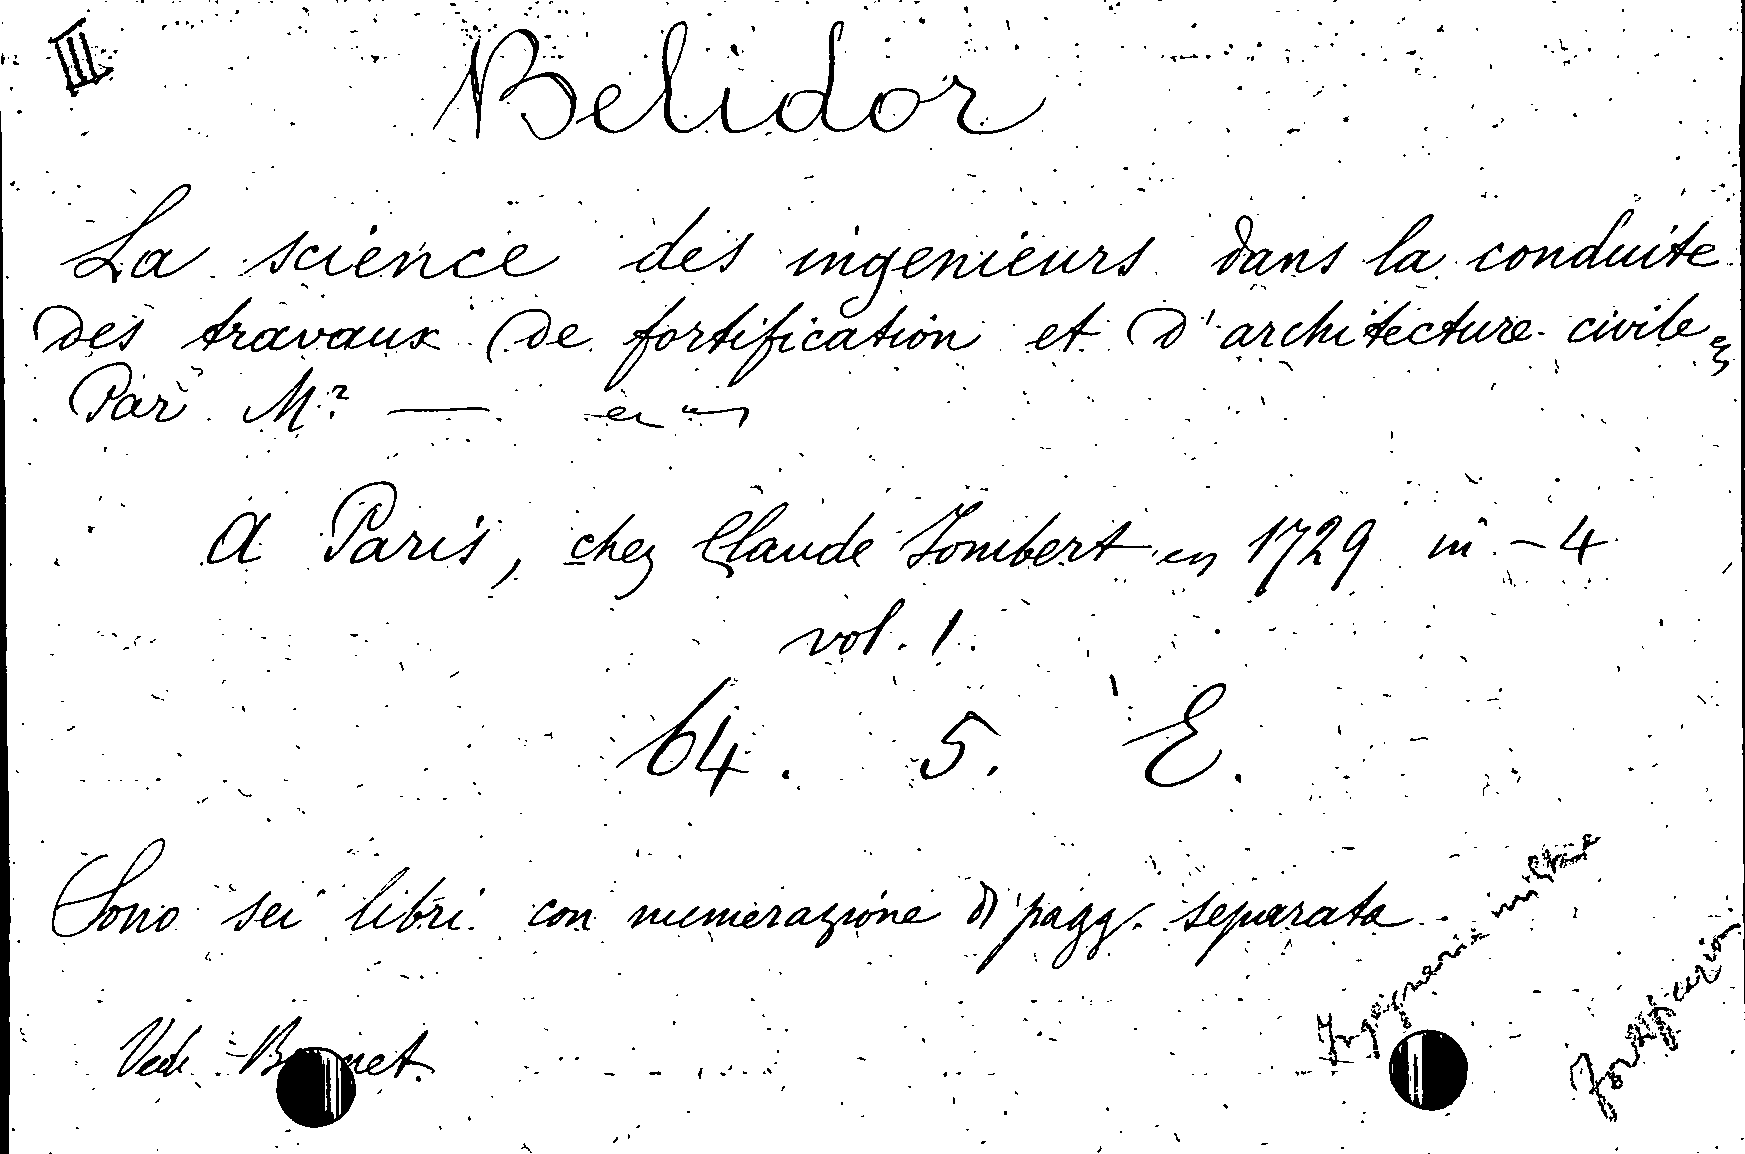 III
Belidor
La science des ingenieurs dans la conduite
des travaux de fortification et d'architecture civile
Par Mr —
A Paris, chez Claude Jombert 1729 in-4
vol. 1.
64. 5. E.
Sono sei libri con numerazione di pagg. separata
Vedi
Ingegneria militare
Fortificazioni